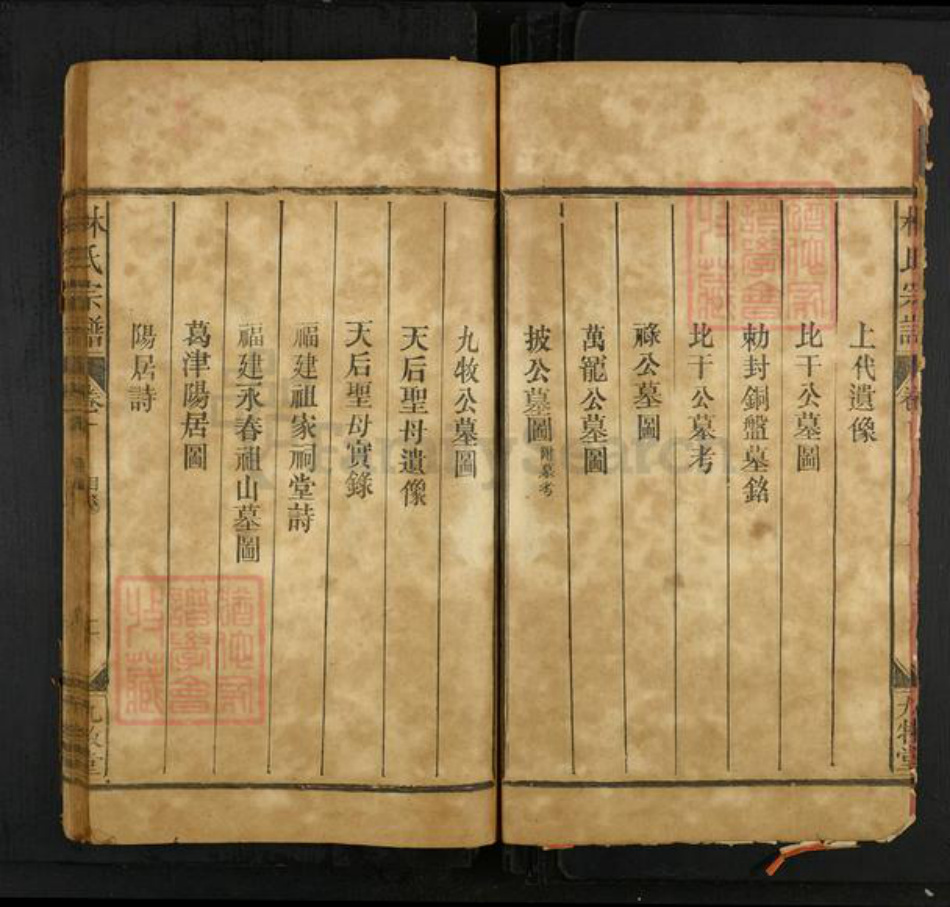 林氏宗譜
九牧堂
上代遺像
比干公墓圖
勅封銅盤墓銘
比干公墓考
祿公墓圖
萬寵公墓圖
披公墓圖附墓考
九牧公墓圖
天后聖母遺像
天后聖母實錄
福建祖家祠堂詩
福建永春祖山墓圖
葛津陽居圖
陽居詩
林氏宗譜
卷
九牧堂
譜學會
收藏
譜學會
收藏